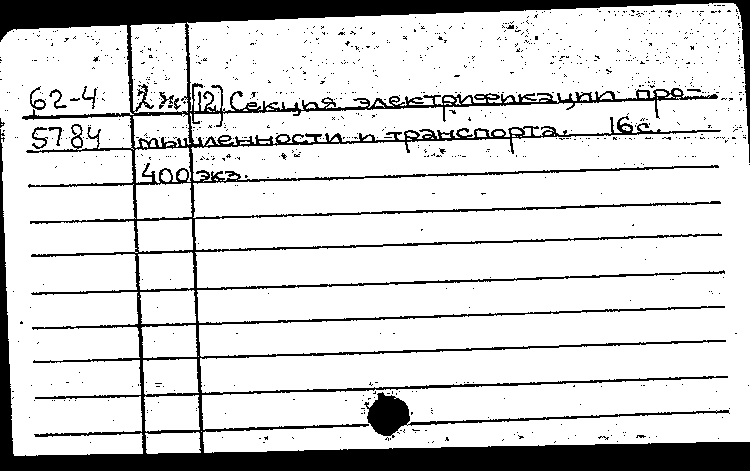 62-4 2ж [12] Секция электрификации про-
5784 мышленности и транспорта. 16с.
400 экз.